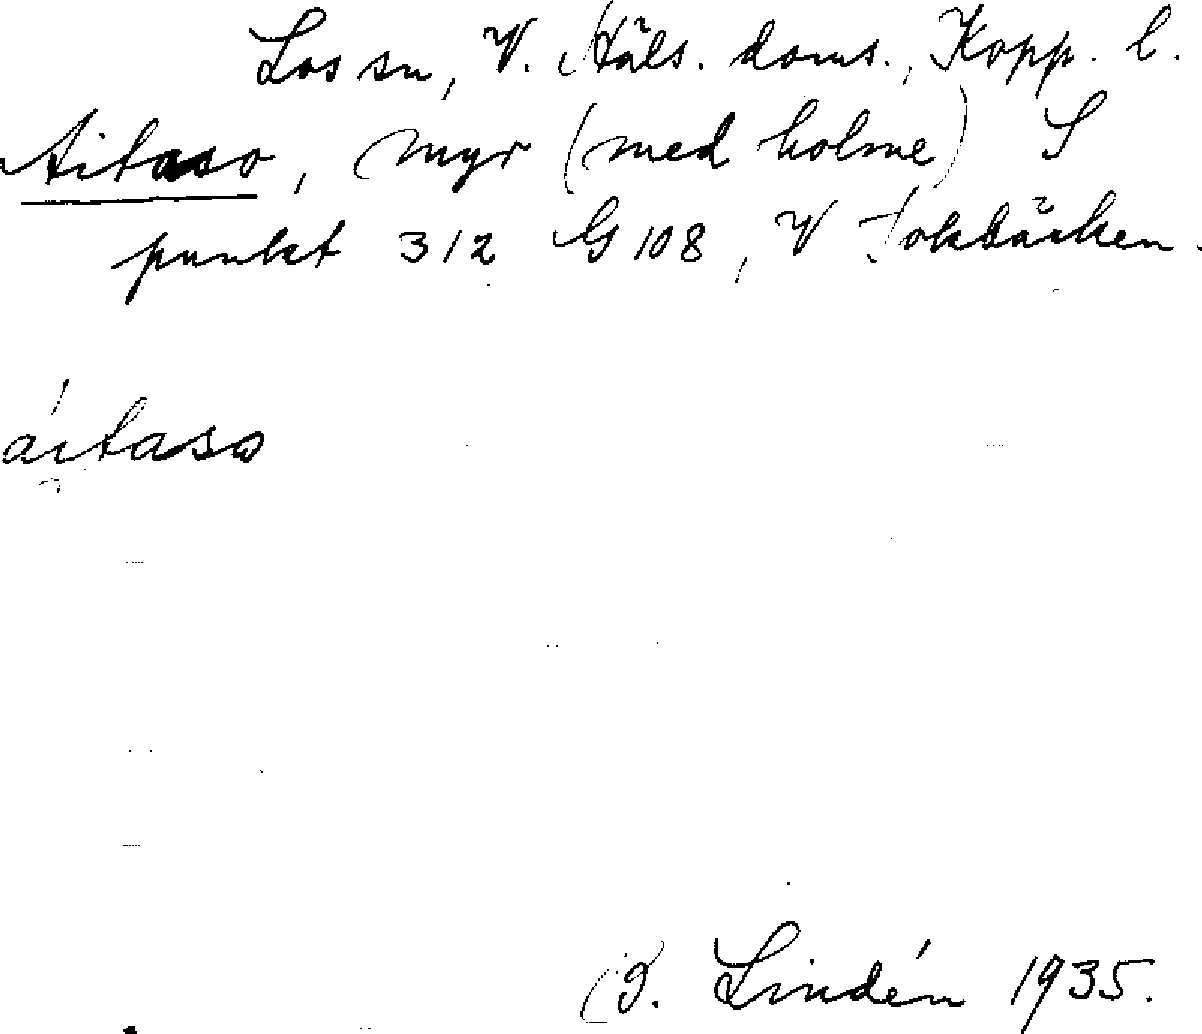 Los sn, V. Häls. doms., Kopp. l.
Aitaso, myr (med holme) S
punkt 312 G 108, V Tokbäcken.
áitaso
B. Lindén 1935.